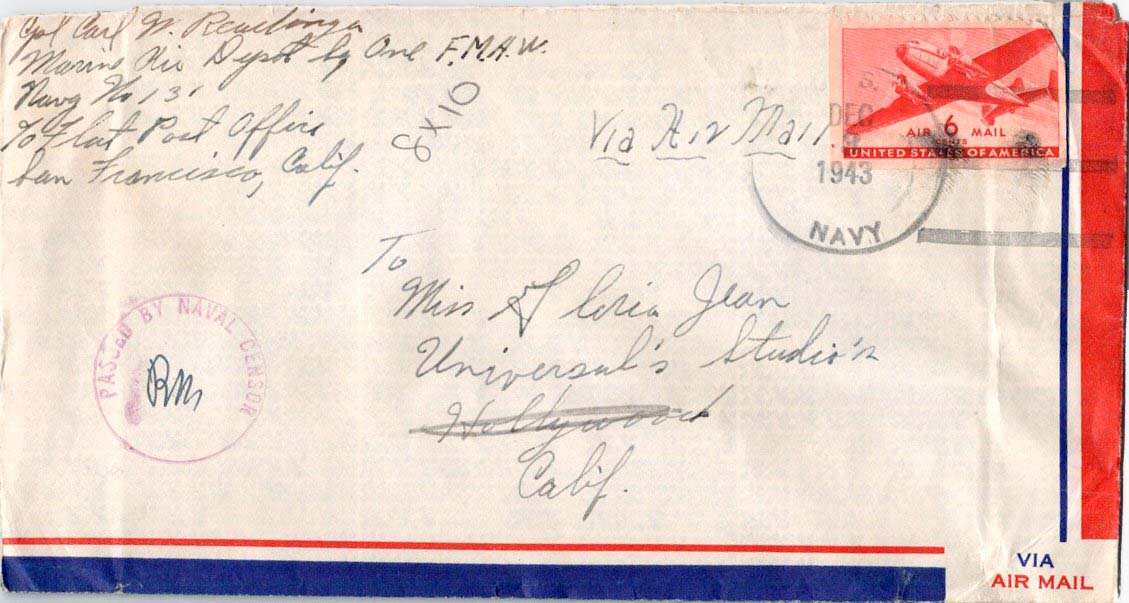 Cpl Carl W.
Marine Air Depot Sq One F.M.A.W.
Navy No 131
% Fleat Post Office
San Francisco, Calif.
8X10
Via Air Mail.
AIR 6 MAIL
CENTS
UNITED STATES OF AMERICA
DEC
1943
NAVY
To
Miss Gloria Jean
Universal's Studio's
Hollywood
Calif.
PASSED BY NAVAL CENSOR
RM
VIA
AIR MAIL